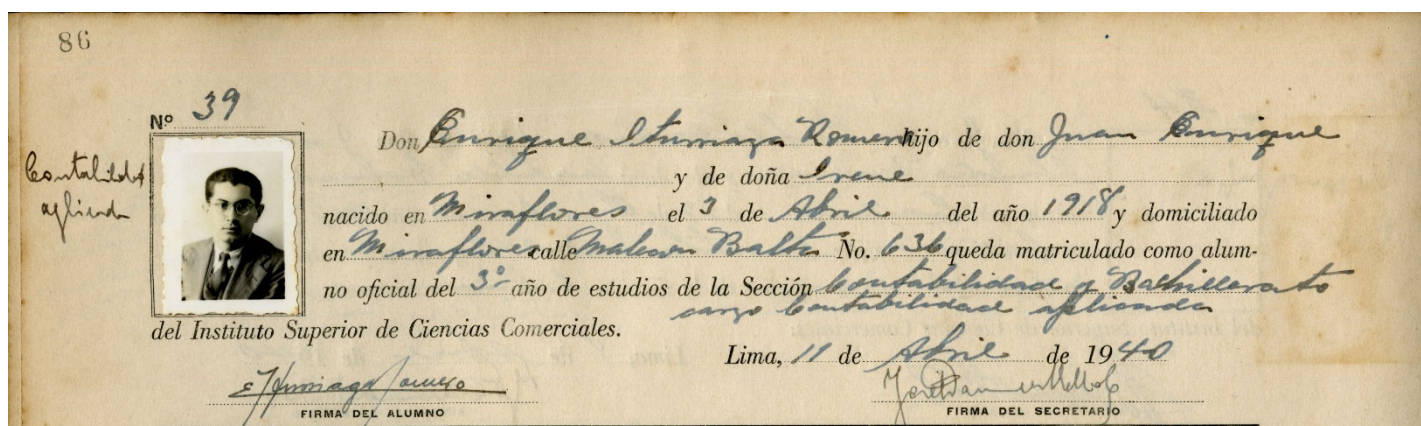 86
Nº 39
Contabilidad
aplicada
Don Enrique Iturriaga Romero hijo de don Juan Enrique
y de doña Irene
nacido en Miraflores el 3 de Abril del año 1918 y domiciliado
en Miraflores calle Malecon Balta No. 636 queda matriculado como alum-
no oficial del 3º año de estudios de la Sección Contabilidad y Bachillerato
cargo Contabilidad aplicada
del Instituto Superior de Ciencias Comerciales.
Lima, 11 de Abril de 1940
E Iturriaga Romero
FIRMA DEL ALUMNO
FIRMA DEL SECRETARIO